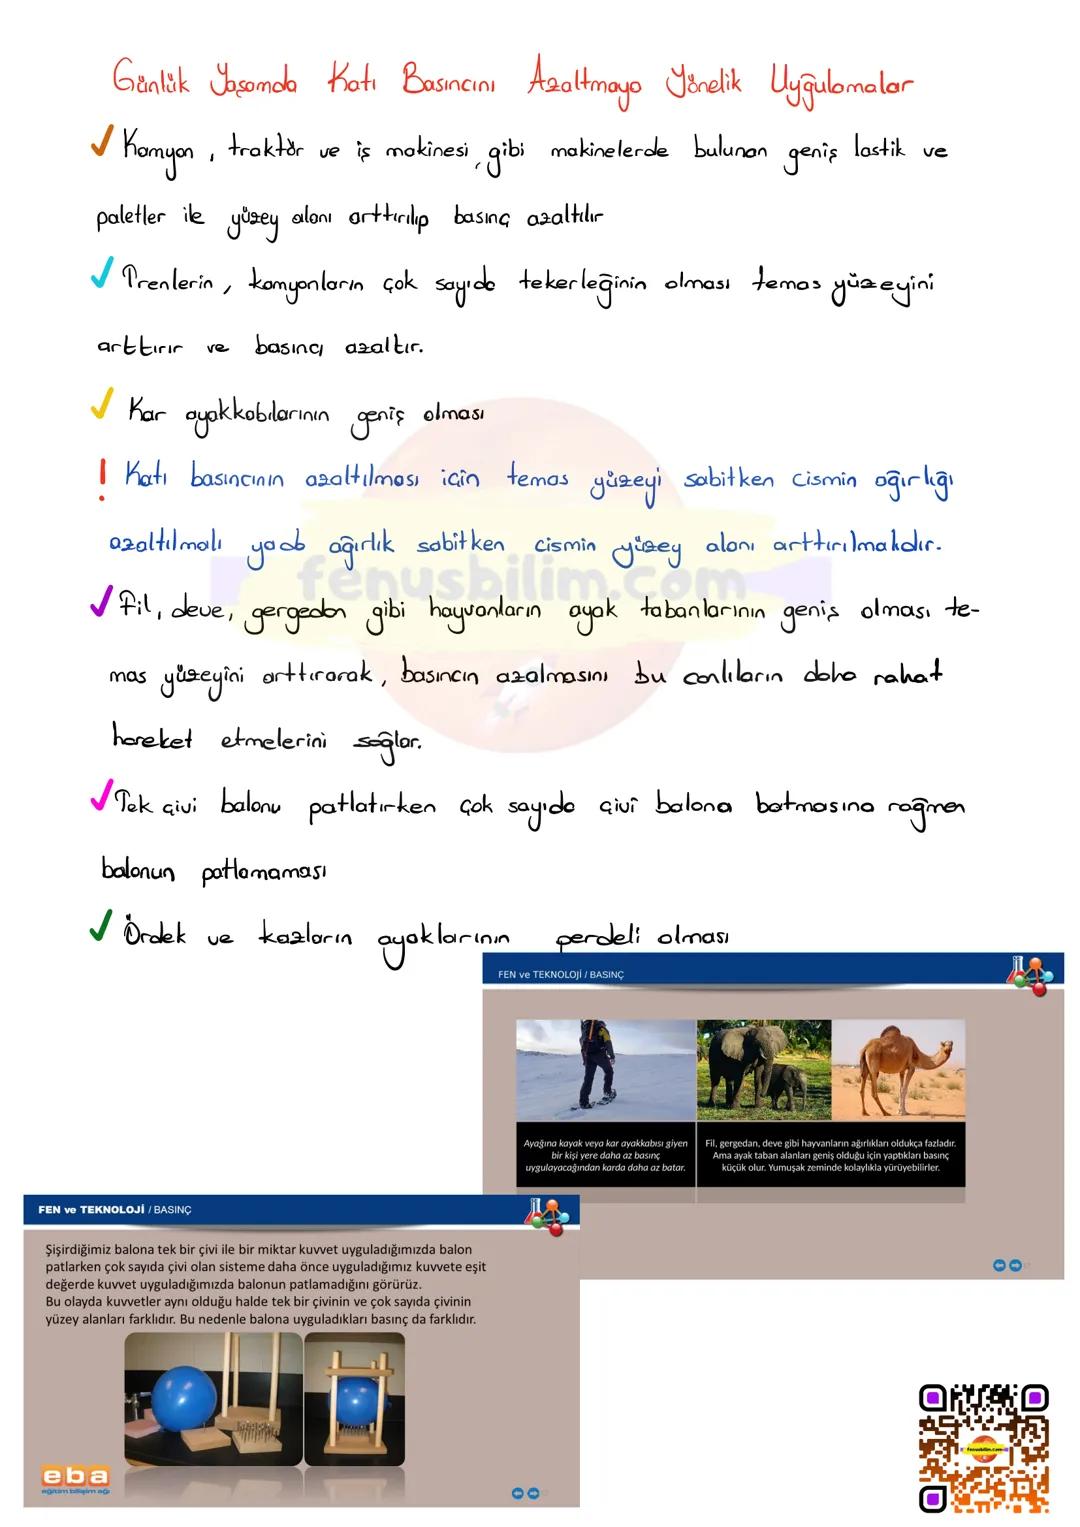 Günlük Yaşamda Katı Basıncını Azaltmaya Yönelik Uyğulamalar
Kamyon, traktör ve iş makinesi gibi makinelerde bulunan geniş lastik ve
paletler ile yüzey alanı arttırılıp basınç azaltılır
Trenlerin, kamyonların çok sayıda tekerleğinin olması temas yüzeyini
arttırır ve basıncı azaltır.
Kar ayakkabılarının geniş olması
! Katı basıncının azaltılması için temas yüzeyi sabitken cismin ağırlığı
azaltılmalı yada ağırlık sabitken cismin yüzey alanı arttırılmalıdır.
fenusbilim.com
Fil, deve, gergedan gibi hayvanların ayak tabanlarının geniş olması te-
mas yüzeyini arttırarak, basıncın azalmasını bu canlıların daha rahat
hareket etmelerini sağlar.
Tek çivi balonu patlatırken çok sayıda çivi balona batmasına rağmen
balonun patlamaması
Ördek ve kazların ayaklarının perdeli olması
FEN ve TEKNOLOJİ / BASINÇ
Ayağına kayak veya kar ayakkabısı giyen
bir kişi yere daha az basınç
uygulayacağından karda daha az batar.
Fil, gergedan, deve gibi hayvanların ağırlıkları oldukça fazladır.
Ama ayak taban alanları geniş olduğu için yaptıkları basınç
küçük olur. Yumuşak zeminde kolaylıkla yürüyebilirler.
FEN ve TEKNOLOJİ / BASINÇ
Şişirdiğimiz balona tek bir çivi ile bir miktar kuvvet uyguladığımızda balon
patlarken çok sayıda çivi olan sisteme daha önce uyguladığımız kuvvete eşit
değerde kuvvet uyguladığımızda balonun patlamadığını görürüz.
Bu olayda kuvvetler aynı olduğu halde tek bir çivinin ve çok sayıda çivinin
yüzey alanları farklıdır. Bu nedenle balona uyguladıkları basınç da farklıdır.
eba
eğitim bilişim ağı
fenusbilim.com